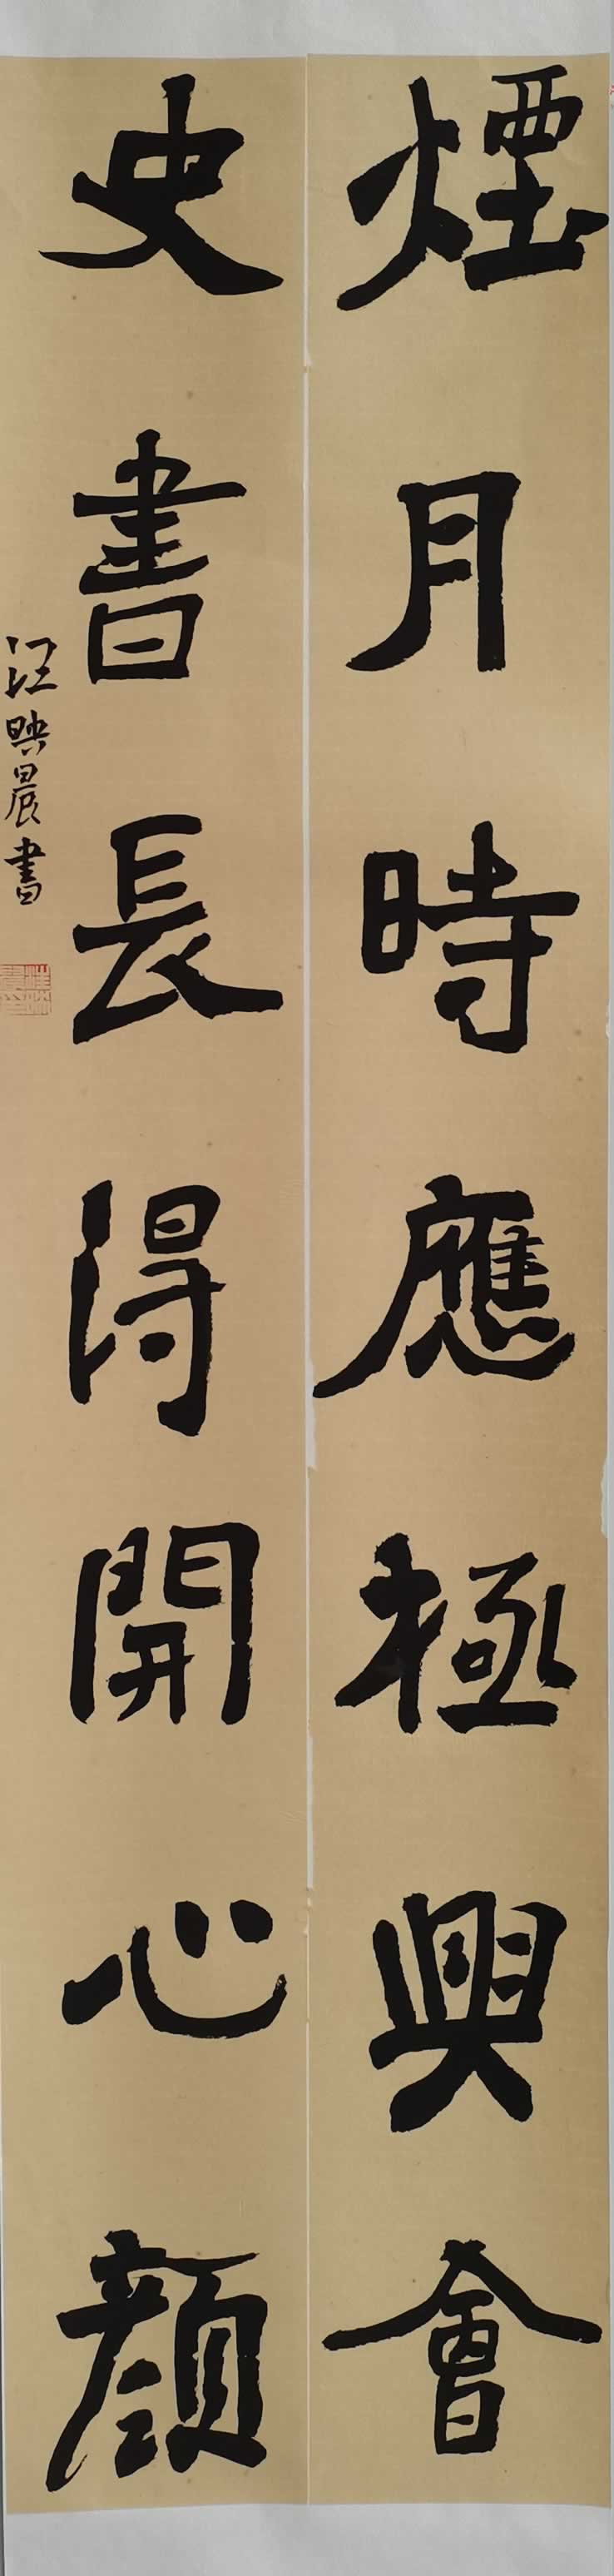 煙月時應極興會
史書長得開心顔
汪映晨書